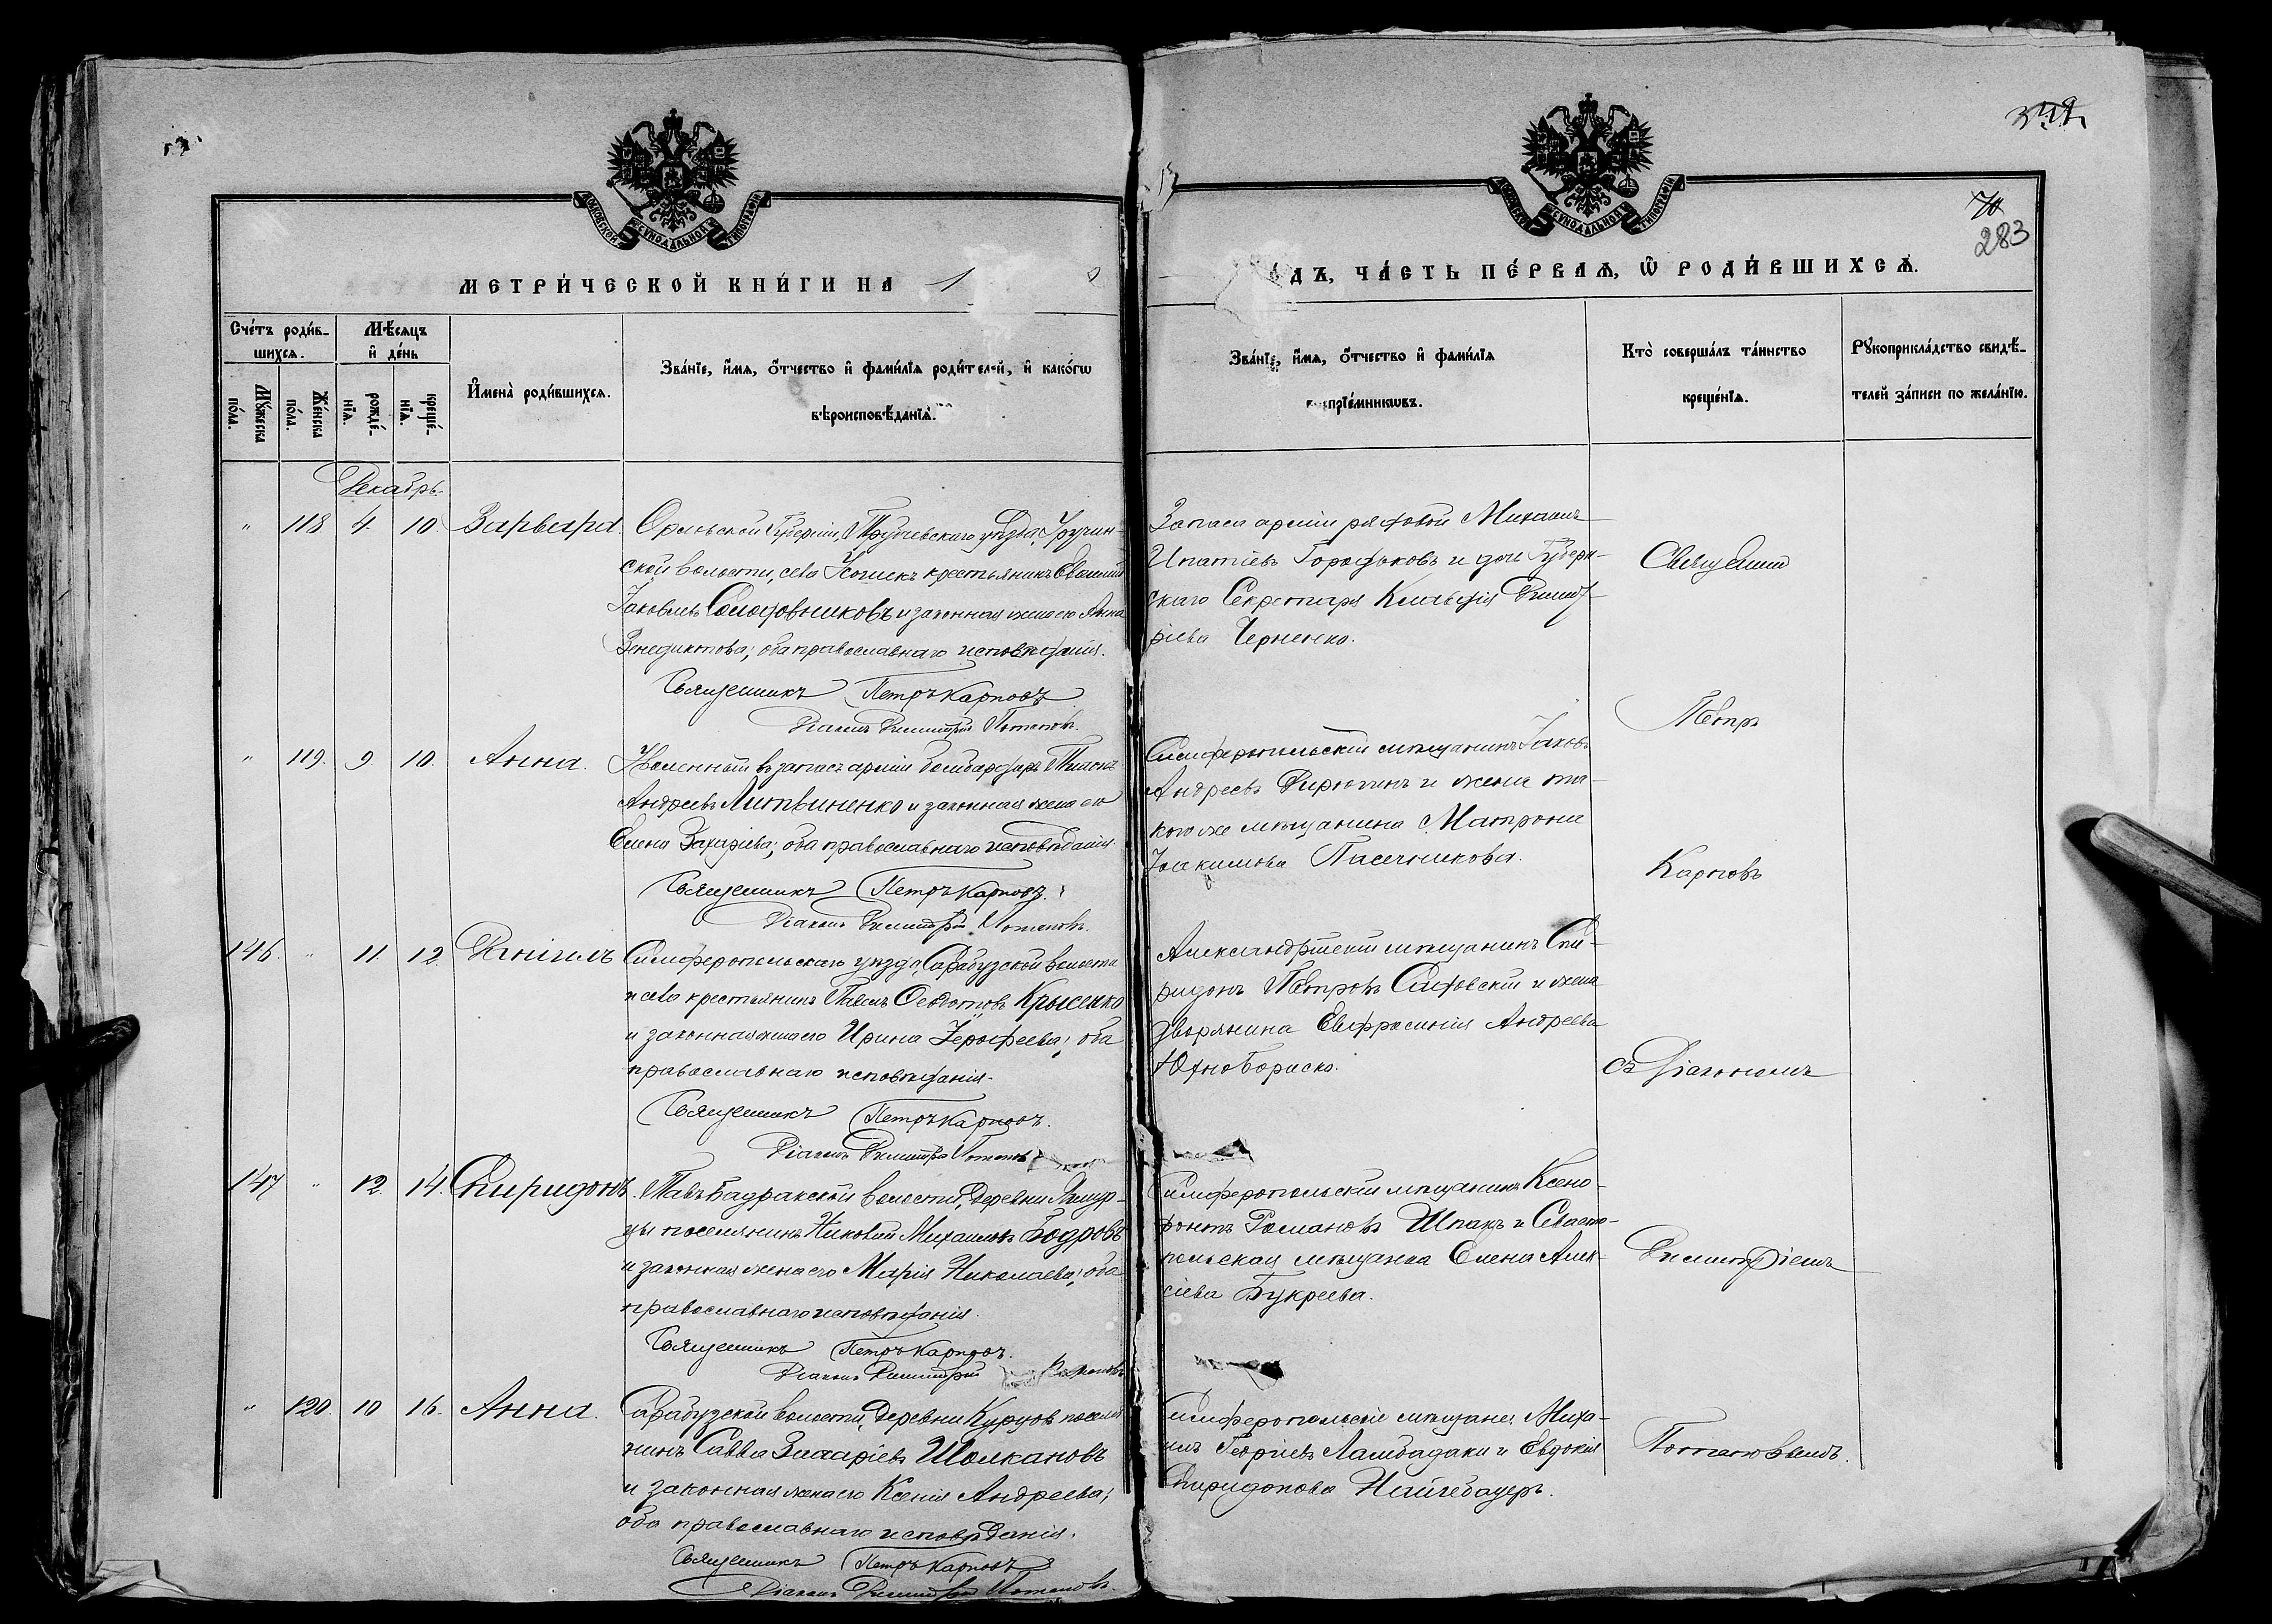 283
МОСКОВСКОЙ СѴНОДАЛЬНОЙ ТИПОГРАФІИ
МОСКОВСКОЙ СѴНОДАЛЬНОЙ ТИПОГРАФІИ
МЕТРИ́ЧЕСКОЙ КНИ́ГИ НА 1
ДЪ, ЧА́СТЬ ПЕ́РВАѦ, Ѡ РОДИ́ВШИХСѦ.
Сче́тъ роди́в-
шихсѧ.
Мѣ́сѧцъ
и де́нь
Мꙋ́жеска
по́ла.
Же́нска
по́ла.
рожде́-
нїѧ.
креще́-
нїѧ.
И҆мена̀ роди́вшихсѧ.
Зва́нїе, и҆́мѧ, ѻ҆́тчество и҆ фами́лїѧ роди́телей, и҆ како́гѡ
вѣроисповѣ́данїѧ.
Зва́нїе, и҆́мѧ, ѻ҆́тчество и҆ фами́лїѧ
прїе́мникѡвъ.
Кто̀ соверша́лъ та́инство
креще́нїѧ.
Рꙋкоприкла́дство свидѣ́-
телей за́писи по жела́нїю.
Декабрь
" 118 4. 10 Варвара.
Орловской Губерніи, Трубчевскаго уѣзда,
ской волости, села крестьянинъ
Іаковлевъ Солодовниковъ и законная жена его Анна
Венедиктова; оба православнаго исповѣданія.
Священникъ Петръ Карповъ
Діаконъ Димитрій Потаповъ.
Запаса арміи рядовой Михаилъ
Ипатіевъ Городьковъ и дочь Губерн-
скаго Секретаря Клавдія Димит-
ріева Черненко.
" 119. 9 10. Анна.
Уволенный въ запасъ арміи бомбардиръ
Андреевъ Литвиненко и законная жена его
Елена Захаріева; оба православнаго исповѣданія
Священникъ Петръ Карповъ.
Діаконъ Димитрій Потаповъ.
Симферопольскій мѣщанинъ Іаковъ
Андреевъ Дирютинъ и жена та-
кого же мѣщанина Матрона
Іоакимова Пасечникова.
146. " 11. 12 Даніилъ
Симферопольскаго уѣзда, Сарабузской волости
и села крестьянинъ Павелъ Ѳеодотовъ Крысенко
и законная жена его Ирина Іерофеева; оба
православнаго исповѣданія.
Священникъ Петръ Карповъ.
Діаконъ Димитрій Потаповъ
Александрійскій мѣщанинъ Спи-
ридонъ Петровъ и жена
дворянина Евфросинія Андреева
Юхнобориско.
147 " 12. 14. Спиридонъ.
Тавъ Бадракской волости, деревни
цы поселянинъ Михаиловъ Бодровъ
и законная жена его Марія Николаева; оба
православнаго исповѣданія.
Священникъ Петръ Карповъ.
Діаконъ Димитрій Потаповъ
Симферопольскій мѣщанинъ Ксено-
фонтъ Романовъ Шпакъ и Севасто-
польская мѣщанка Елена Алек-
сіева Букреева.
" 120. 10 16. Анна.
Сарабузской волости, деревни Курцовъ поселя-
нинъ Савва Захаріевъ Шолкановъ
и законная жена его Ксенія Андреева;
оба православнаго исповѣданія.
Священникъ Петръ Карповъ
Діаконъ Димитрій Потаповъ.
Симферопольскіе мѣщане Миха-
илъ Георгіевъ Ламбадаки и Евдокія
Спиридонова Найгебауеръ.
Священникъ
Петръ
Карповъ
съ Діакономъ
Димитріемъ
Потаповымъ.